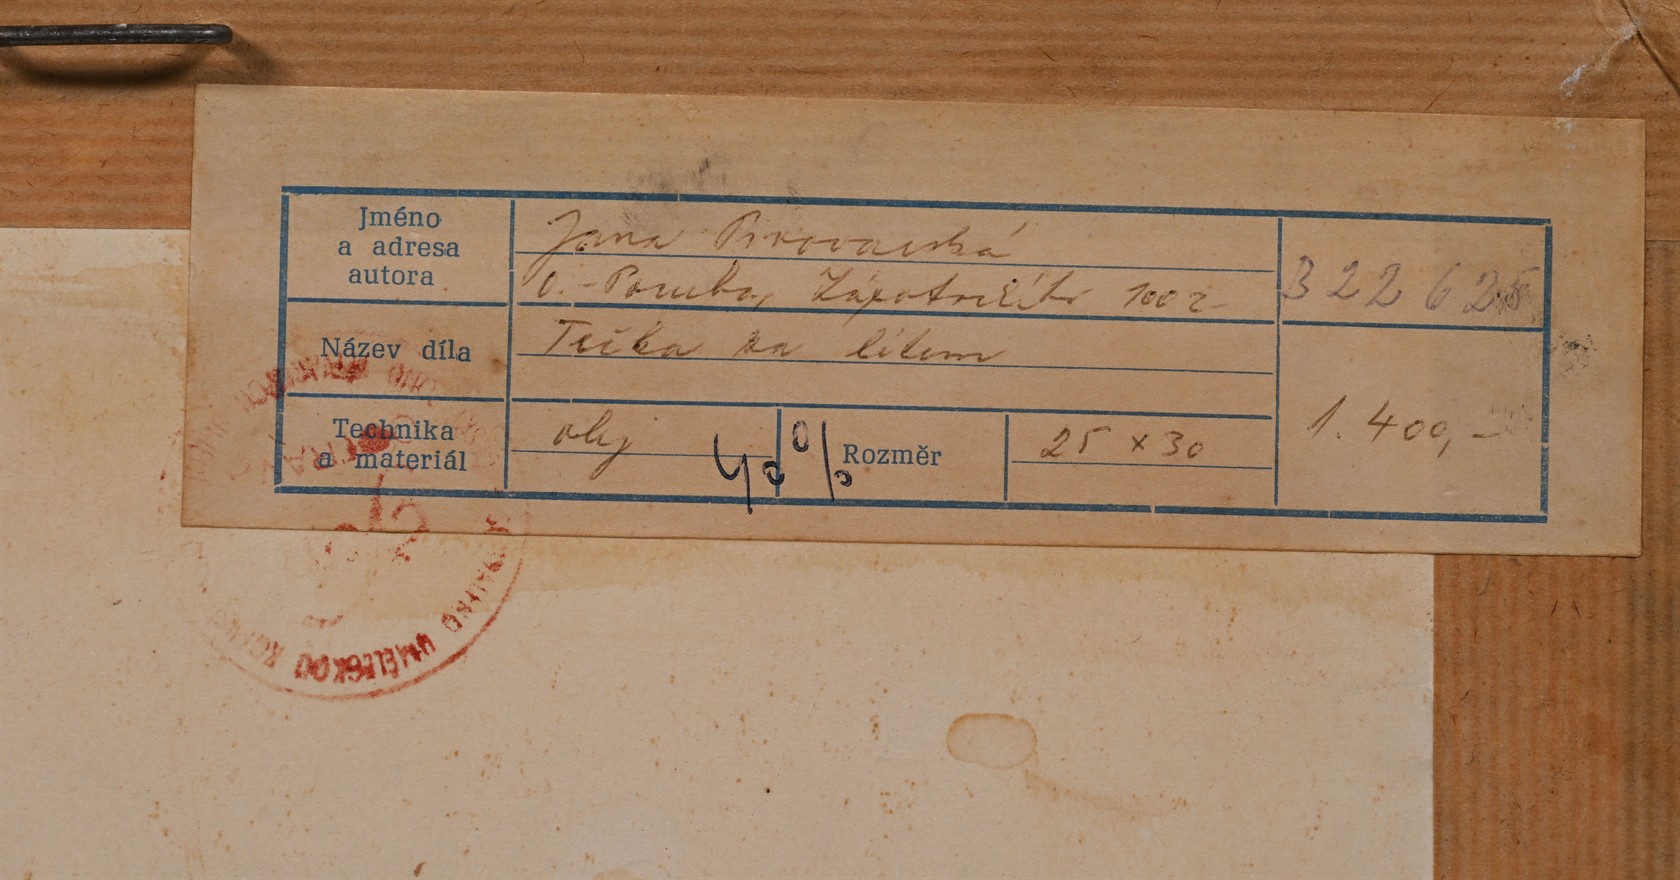 Jméno
a adresa
autora
Jana Pivovarská
O.-Poruba, Zápotockého 1002
322 625
Název díla
Tečka za létem
Technika
a materiál
olej
40%
Rozměr
25 x 30
1.400,-
UMĚLECKOU